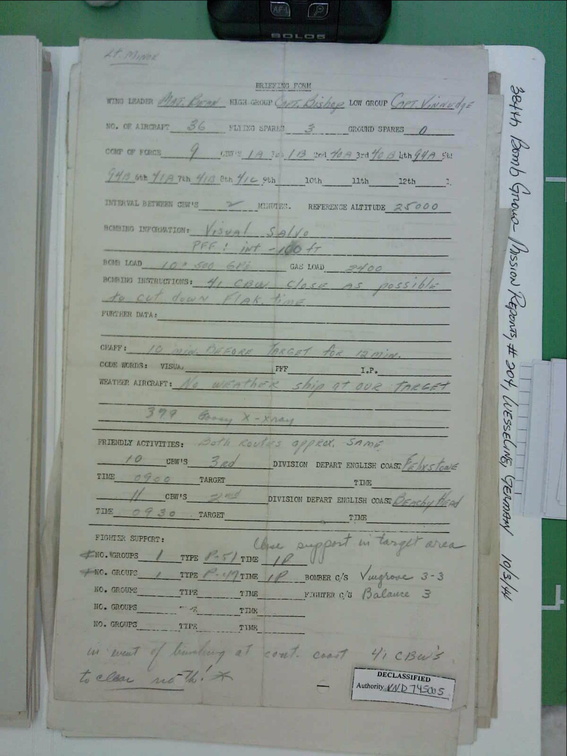 SOLOS
Lt. Minor
BRIEFING FORM
WING LEADER Maj. HIGH GROUP Capt. Bishop LOW GROUP Capt.
NO. OF AIRCRAFT 36 FLYING SPARES 3 GROUND SPARES 0
COMP OF FORCE 9 CBW'S 1A 1st 1B 2nd 40A 3rd 40B 4th 94A 5th
94B 6th 41A 7th 41B 8th 41C 9th 10th 11th 12th
INTERVAL BETWEEN CBW'S 2 MINUTES. REFERENCE ALTITUDE 25000
BOMBING INFORMATION: Visual Salvo
PFF: int -100 ft
BOMB LOAD 10 - 500 GAS LOAD 2700
BOMBING INSTRUCTIONS: 41 CBW close as possible
to cut down flak time
FURTHER DATA:
CHAFF: 10 min. before target for 12 min.
CODE WORDS: VISUAL PFF I.P.
WEATHER AIRCRAFT: No weather ship at our target
379 X-xray
FRIENDLY ACTIVITIES: Both routes approx. same
10 CBW'S 3rd DIVISION DEPART ENGLISH COAST Felixstowe
TIME 0900 TARGET TIME
11 CBW'S 2nd DIVISION DEPART ENGLISH COAST Beachy Head
TIME 0930 TARGET TIME
FIGHTER SUPPORT: Close support in target area
*NO. GROUPS 1 TYPE P-51 TIME IP
*NO. GROUPS 1 TYPE P-47 TIME IP BOMBER C/S Vingrove 3-3
NO. GROUPS TYPE TIME FIGHTER C/S Balance 3
NO. GROUPS TYPE TIME
NO. GROUPS TYPE TIME
in of bombing at cont. coast 41 CBW's
to close
DECLASSIFIED
Authority NND 745005
384th Bomb Group - Mission Reports, #204, Wesseling, Germany 10/3/44